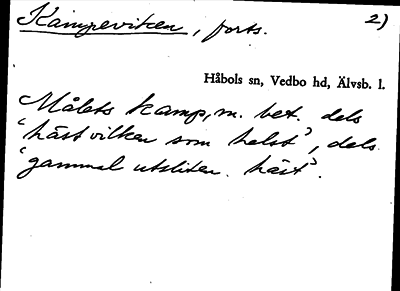 Kampeviken, forts. 2)
Håbols sn, Vedbo hd, Älvsb. l.
Målets kamp, m. bet. dels
'häst vilken som helst', dels
'gammal utsliten häst'.